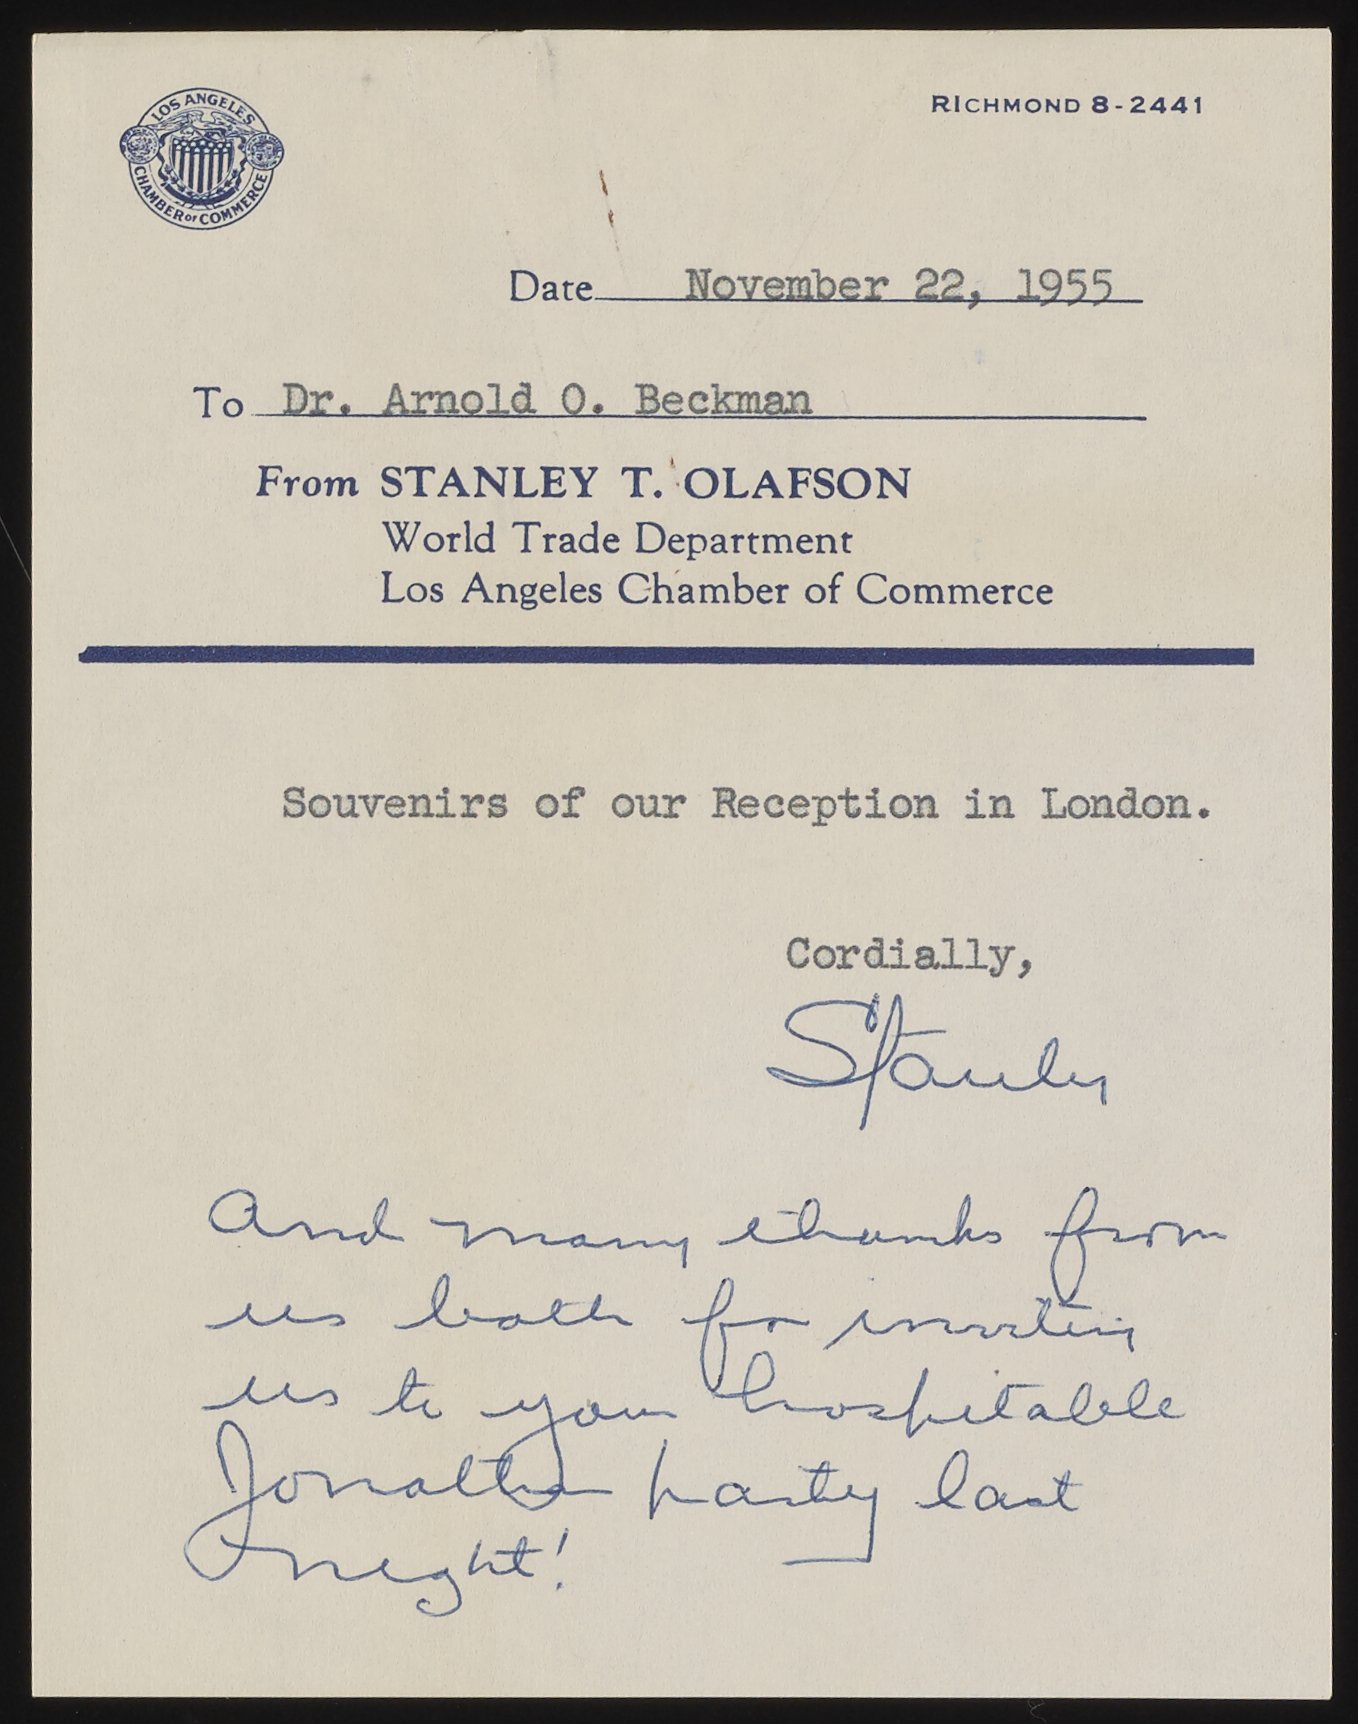 LOS ANGELES
CHAMBER OF COMMERCE
RICHMOND 8-2441
Date November 22, 1955
To Dr. Arnold O. Beckman
From STANLEY T. OLAFSON
World Trade Department
Los Angeles Chamber of Commerce
Souvenirs of our Reception in London.
Cordially,
Stanley
And many thanks from
us both for inviting
us to your hospitable
Jonathan party last
night!